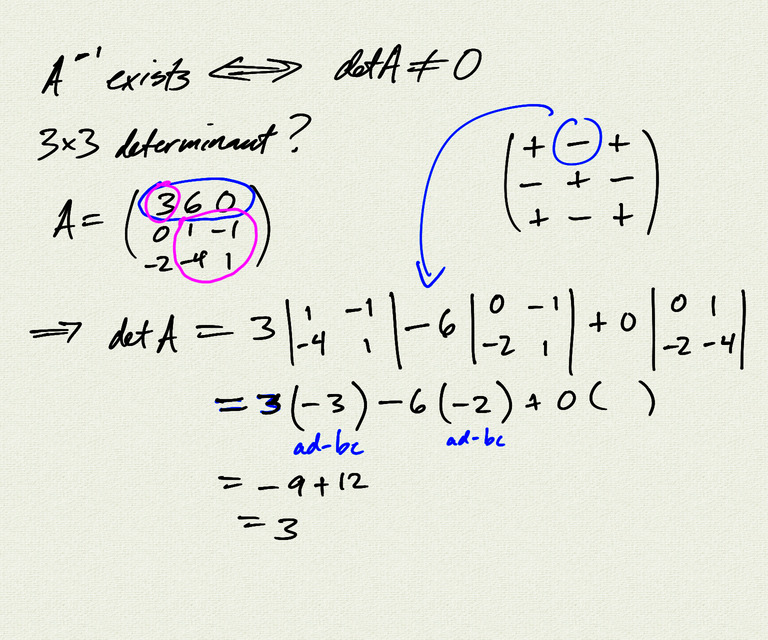 A⁻¹ exists ⟺ det A ≠ 0
3×3 determinant?
( + − +
− + −
+ − + )
A = ( 3 6 0
0 1 −1
−2 −4 1 )
⟹ det A = 3 | 1 −1 | − 6 | 0 −1 | + 0 | 0 1 |
| −4 1 | | −2 1 | | −2 −4 |
= 3 (−3) − 6 (−2) + 0 ( )
ad−bc ad−bc
= −9 + 12
= 3